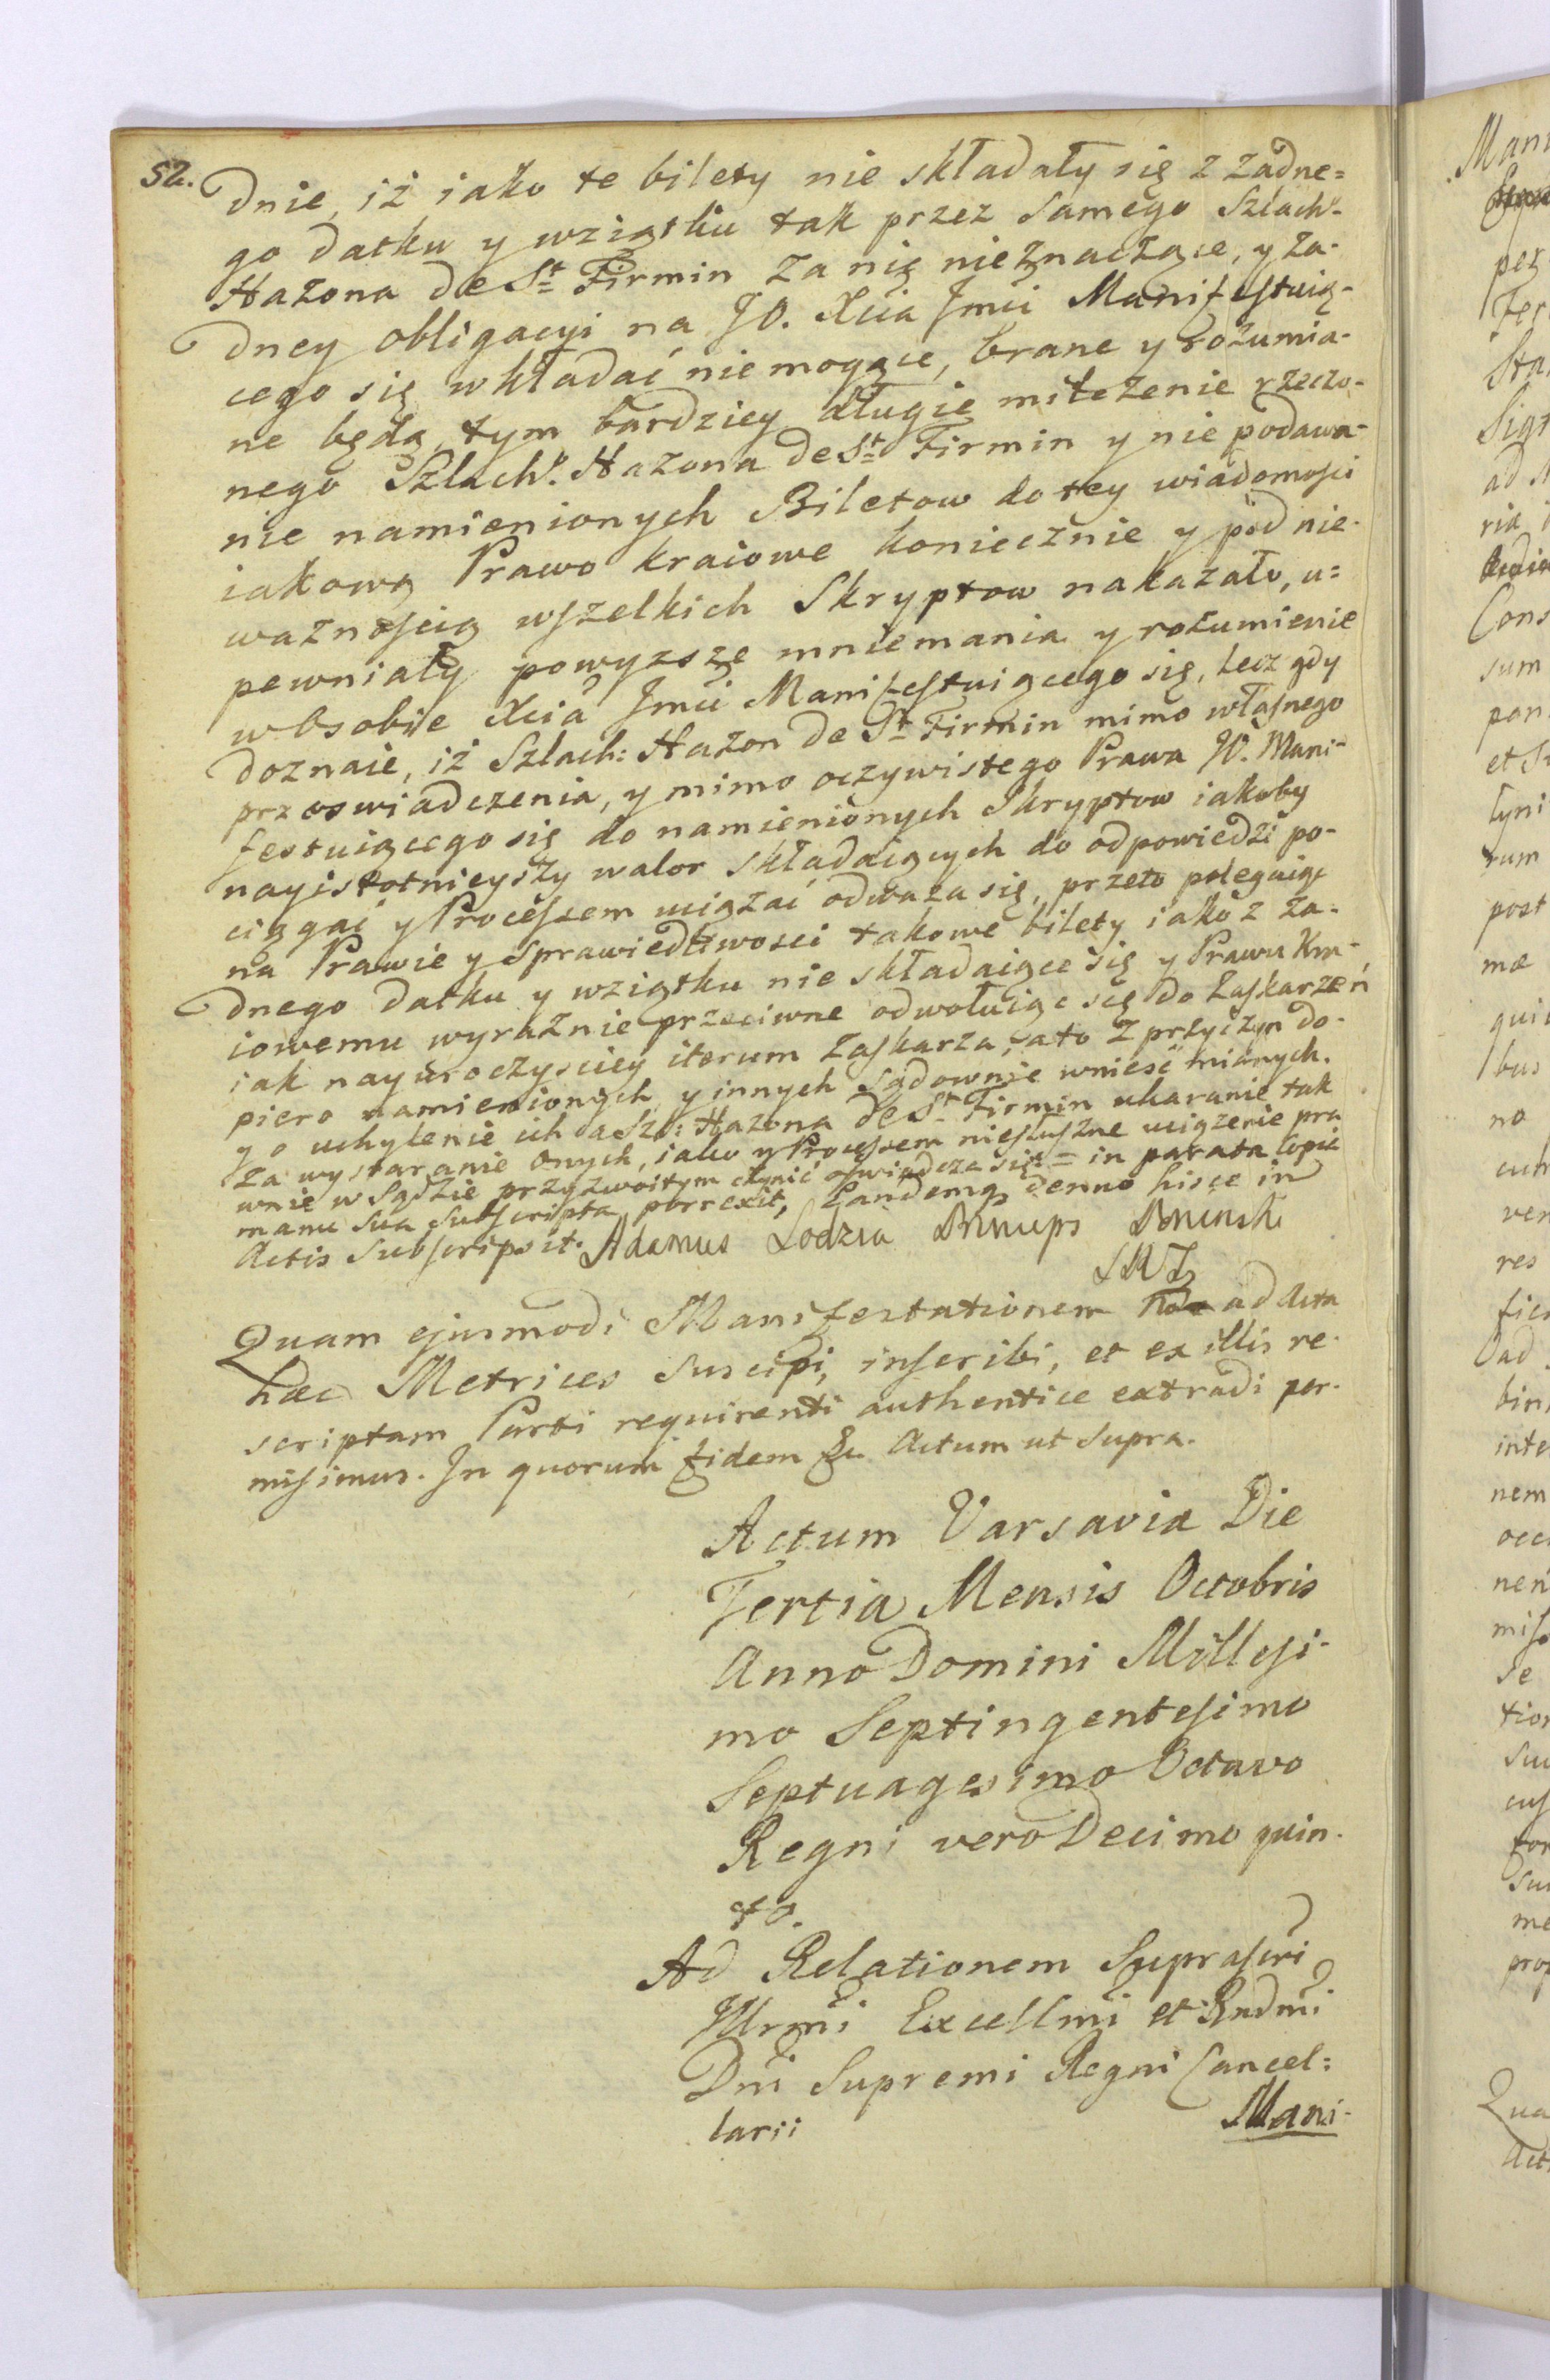 52.
dnie, iż iako te bilety nie składały się z żadne=
go datku y wziątku tak przez samego Szlach°
Hazona de St Firmin za nię nieznaczące, y ża-
dney obligacyi na JO. Xcia Jmci Manifestuią-
cego się wkładać nie mogące, brane y rozumia-
ne będą, tym bardziey długie milczenie rzeczo-
nego Szlach°. Hazona de St Firmin y nie podawa-
nie namienionych Biletow do tey wiadomości
iakową Prawo kraiowe koniecznie y pod nie-
ważnością wszelkich Skryptow nakazało, u=
pewniały powyższe mniemania y rozumienie
w Osobie Xcia Jmci Manifestuiącego się, lecz gdy
doznaie, iż Szlach: Hazon de St Firmin mimo własnego
przeswiadczenia, y mimo oczywistego Prawa W. Mani-
festuiącego się do namienionych Skryptow iakoby
nayistotnieyszy walor składaiących do odpowiedzi po-
ciągać y Processem uciążać odważa się, przeto polegaiąc
na Prawie y sprawiedliwosci takowe bilety iako z ża-
dnego datku y wziątku nie składaiące się y Prawu Kra-
iowemu wyraźnie przeciwne odwołuiąc się do Zaskarzeń
iak nayuroczysciey iterum zaskarza, ato z przyczyn do-
piero namienionych y innych sądownie wniesć mianych.
y o uchylenie ich a Szl: Hazona de St Firmin ukaranie tak
za wystaranie onych, iako y Processem niesłuszne uciążenie pra
wnie w Sądzie przyzwoitym czynić oświadcza się = in parata Copia
manu sua subscripta porrexit, Eandemq denuo hisce in
Actis subscripsit. Adamus Lodzia Princeps Poninski
Quam ejusmodi Manifestationem ad Acta
haec Metrices suscipi, inscribi, et ex illis re-
scriptam Parti requirenti authentice extradi per-
misimus. In quorum fidem &c Actum ut supra.
Actum Varsavia Die
Tertia Mensis Octobris
Anno Domini Millesi-
mo Septingentesimo
Septuagesimo Octavo
Regni vero Decimo quin-
to.
Ad Relationem Suprascri
Illrmi Excellmi et Rndmi
Dni Supremi Regni Cancel=
larii
Mani-